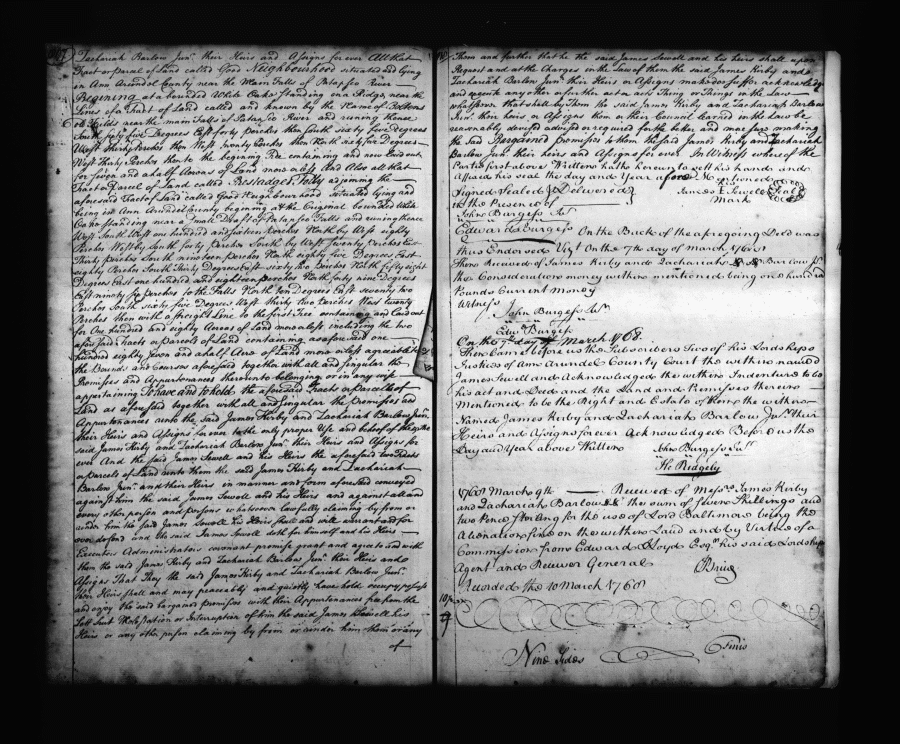 Zachariah Barlow Junr. their Heirs and Assigns for ever All that
Tract or parcel of Land called Good Neighbourhood situated and lying
in Ann Arundel County near the Main Falls of Patapsco River
Begining at a bounded White Oake standing on a Ridge near the
Lines of a Tract of Land called and known by the Name of
Fields near the main Falls of Patapsco River and runing thence
South fifty five Degrees East forty perches then South sixty five Degrees
West thirty Perches then West twenty Perches then North sixty five Degrees
West thirty Perches then to the begining Tre containing and now laid out
for Seven and a half Acres of Land more or less And Also all that
Tract or Parcel of Land called Folly adjoining the
aforesaid Tract of Land called Good Neighbourhood situated lying and
being in Ann Arundel County begining at the Original bounded White
Oak standing near a small Draft of Patapsco Falls and runing thence
West South West one hundred and sixteen Perches North by West eighty
Perches West by South forty Perches South by West Twenty Perches
thirty Perches South nineteen perches North eighty five Degrees East
eighty Perches South thirty Degrees East sixty two Perches North fifty eight
Degrees East one hundred and eighteen perches North forty nine Degrees
East ninety six perches to the Falls North ten Degrees East seventy two
Perches South sixty five Degrees West thirty two perches West twenty
Perches then with a straight Line to the first Tree containing and Laid out
for One hundred and eighty Acres of Land more or less including the two
aforesaid Tracts or parcels of Land containing as aforesaid one
hundred eighty seven and a half Acres of Land more or less agreeable to
the Bounds and Courses aforesaid together with all and singular the
Premises and Appurtenances thereunto belonging or in any wise
appertaining To have and to hold the aforesaid Tracts or parcells of
Land as aforesaid together with all and singular the Premises and
Appurtenances unto the said James Kirby and Zachariah Barlow Junr.
their Heirs and Assigns for ever to the only proper Use and behoof of the
said James Kirby and Zachariah Barlow Junr. their Heirs and Assigns for
ever And the said James Sewell and his Heirs the aforesaid two Tracts
or parcels of Land unto them the said James Kirby and Zachariah
Barlow Junr. and their Heirs in manner and form aforesaid conveyed
against him the said James Sewell and his Heirs and against all and
every other person and persons whatsoever lawfully claiming by from or
under him the said James Sewell his Heirs shall and will warrant and for
ever defend and the said James Sewell doth for himself and his Heirs
Executors Administrators covenant promise grant and agree to and with
them the said James Kirby and Zachariah Barlow Junr. their Heirs and
Assigns That They the said James Kirby and Zachariah Barlow Junr.
their Heirs shall and may peaceably and quietly have hold occupy possess
and enjoy the said bargained premises with their Appurtenances free from the
Lett Suit Molestation or Interruption of him the said James Sewell his
Heirs or any other person claiming by from or under him them or any
of
Them and further that he the said James Sewell and his heirs shall upon
Request and at the Charges in the Law of them the said James Kirby and
Zachariah Barlow Junr. their Heirs or Assigns make do suffer acknowledge
and execute any other or further act or acts Thing or Things in the Law
whatsoever that shall by Them the said James Kirby and Zachariah Barlow
Junr. their heirs or Assigns them or their Council learned in the Law be
reasonably devised advised or required for the better and more sure making
the said Bargained premises to them the said James Kirby and Zachariah
Barlow Junr. their heirs and Assigns for ever In Witness whereof the
Parties first above Written hath hereunto sett his hand and
Affixed his seal the day and Year afore Mentioned
Signed Sealed & Delivered
In the Presence of
his
James Sewell Seal
Mark
John Burgess Jr
Edward Burgess On the Back of the aforegoing Deed was
thus Endorsed Vizt On the 7th day of March 1768
then Received of James Kirby and Zachariah Barlow Jr.
the Consideration money within mentioned being one hundred
Pounds Current Money
Witness
John Burgess Jr.
Edwd. Burgess
On the 7th day of March 1768
Then Came before us the Subscribers Two of his Lordships
Justices of Ann Arundel County Court the within named
James Sewell and Acknowledged the within Indenture to be
his act and Deed and the Land and Premises therein
Mentioned to be the Right and Estate of the within
Named James Kirby and Zachariah Barlow Junr. their
Heirs and Assigns forever Acknowledged Before us the
Day and Year above Written
John Burgess Jr.
He Ridgely
1768 March 9th Received of Messrs. James Kirby
and Zachariah Barlow the sum of seven Shillings and
two Pence Sterling for the use of Lord Baltimore being the
Alienation fine on the within Land and by Virtue of a
Commission from Edward Lloyd Esqr. his said Lordships
Agent and Receiver General
Recorded the 10 March 1768
Nine Sides
Finis